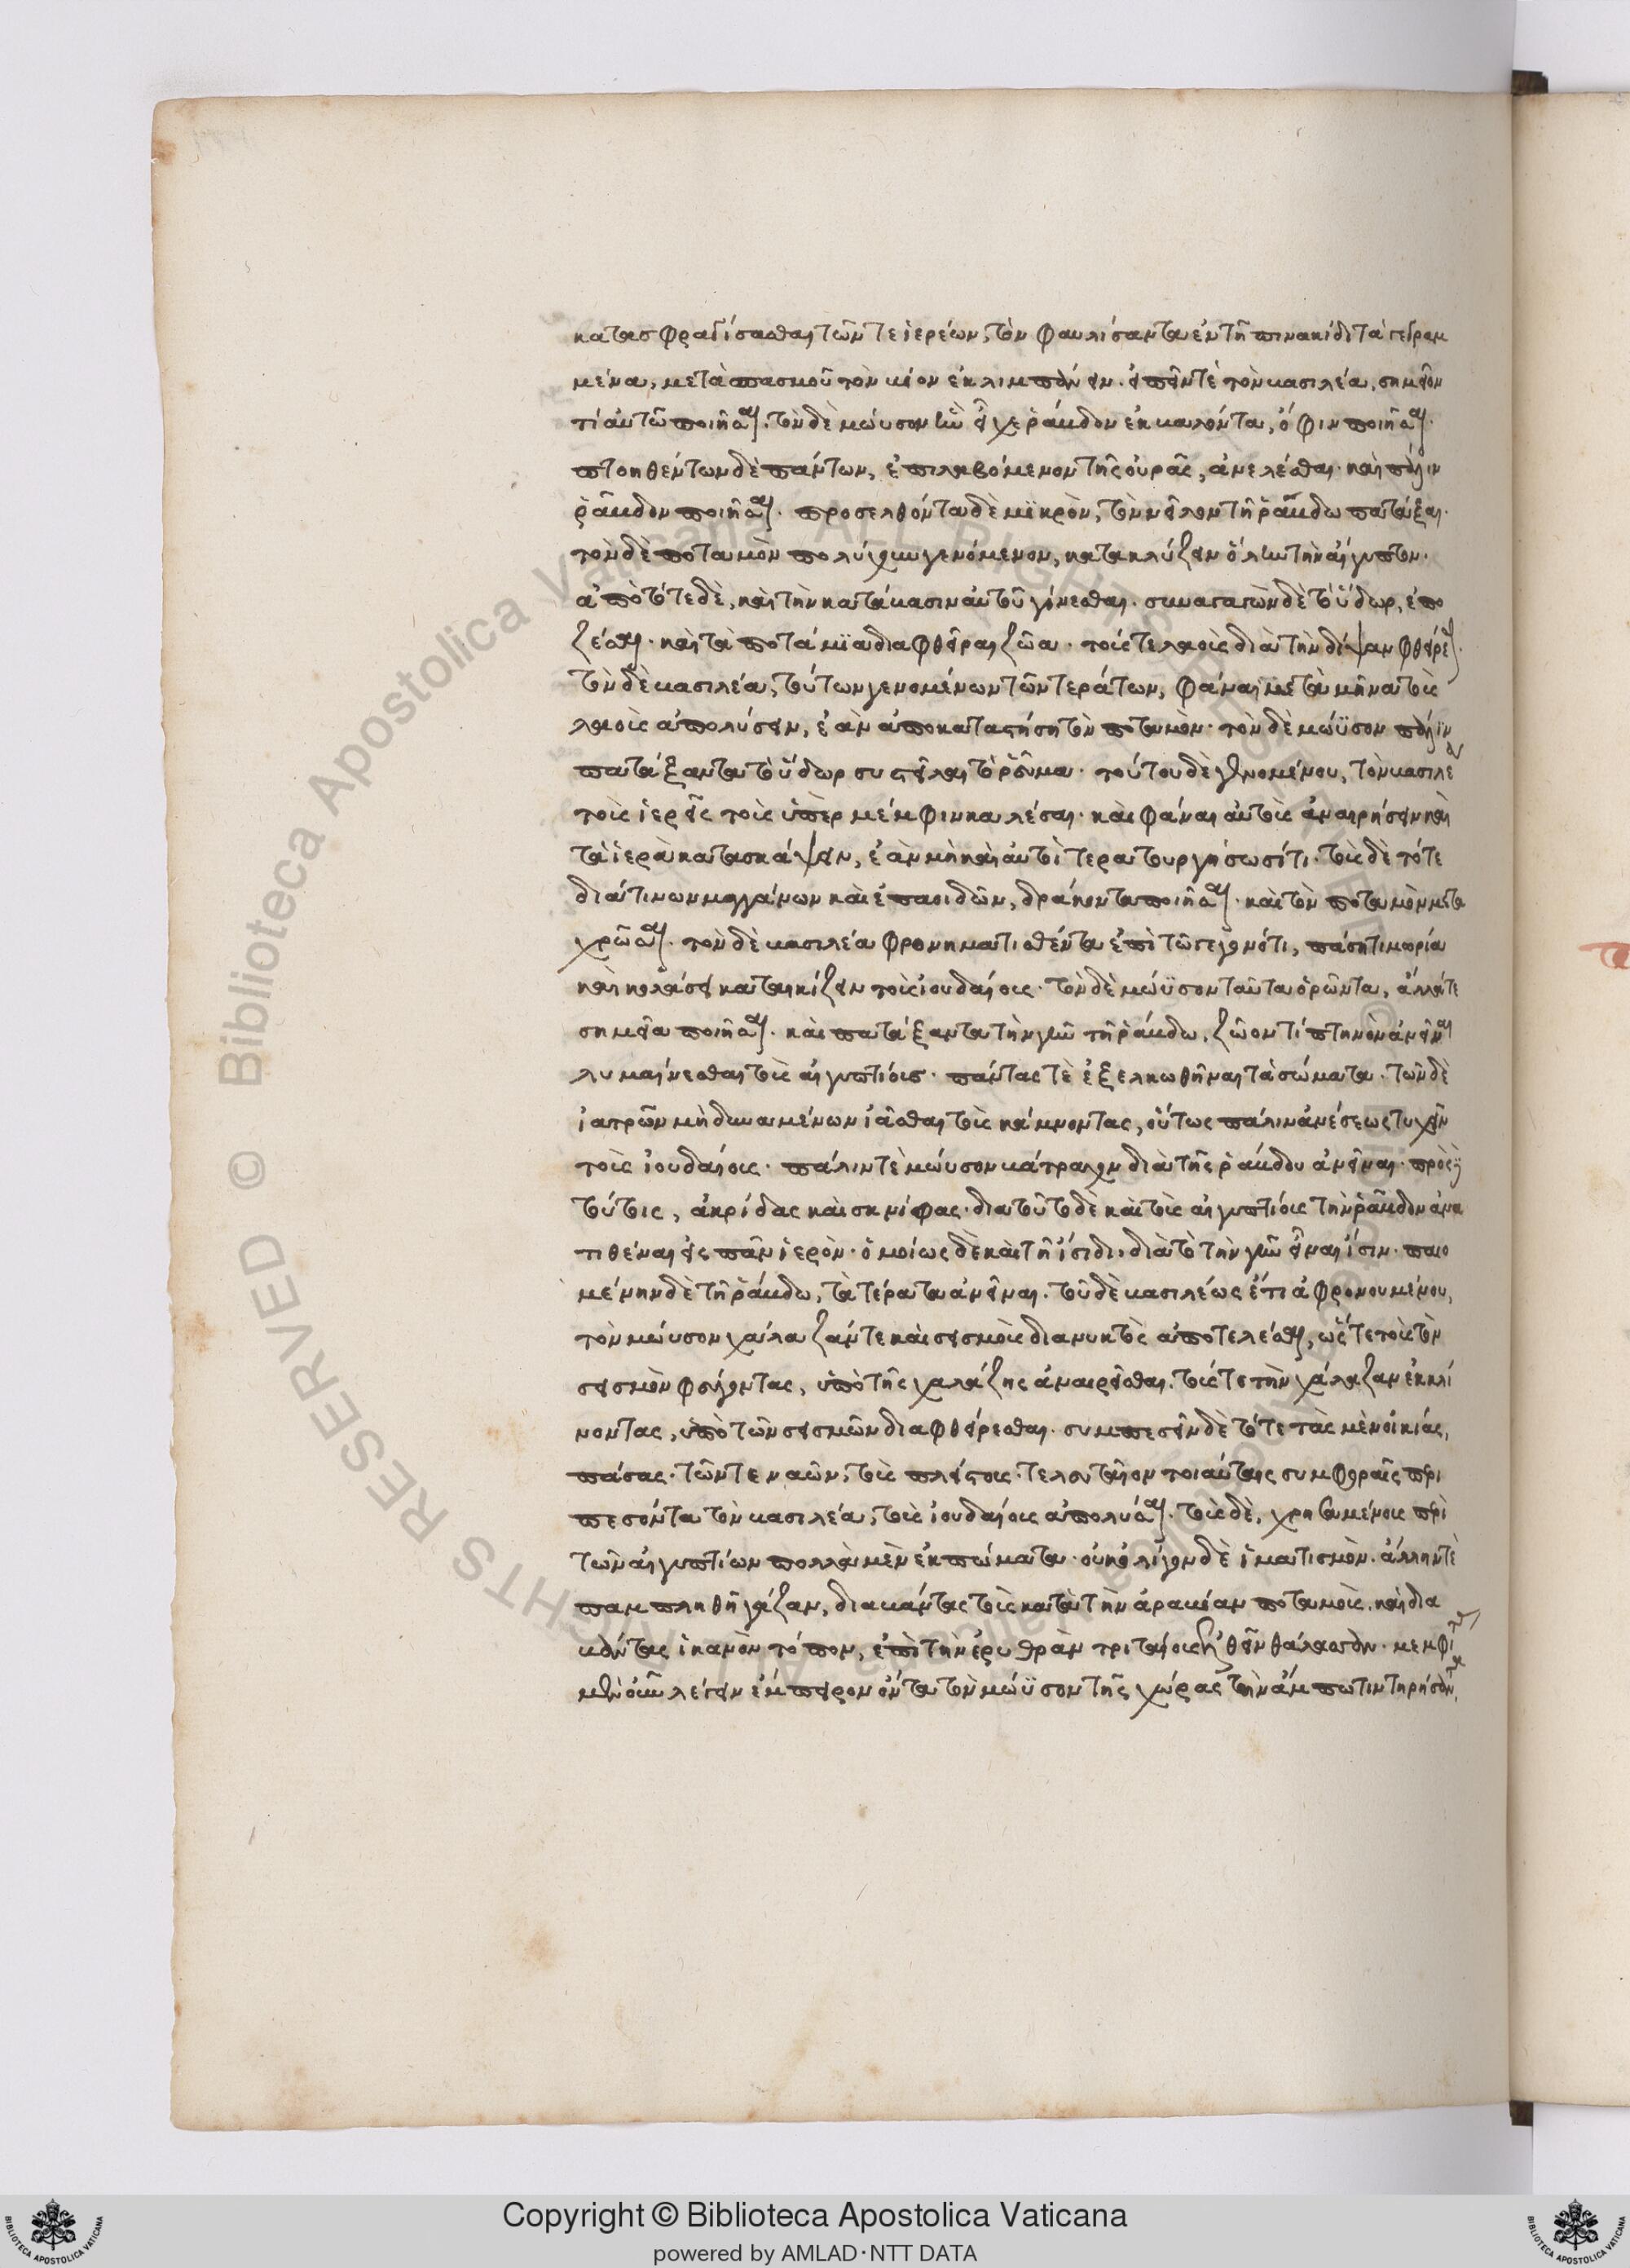 κατασφραγίσασθαι τῶν τε ἱερέων, τὸν φαυλίσαντα ἐν τῇ πινακίδι τὰ γεγραμ
μένα, μετὰ σπασμοῦ τὸν βίον ἐκλιμπάνειν. εἰπεῖν τὲ τὸν βασιλέα, σημεῖον
τί αὐτῶ ποιῆσαι. τὸν δὲ μώϋσον ἣν εἶχε ῥάβδον ἐκβαλόντα, ὄφιν ποιῆσαι.
πτοηθέντων δὲ πάντων, ἐπιλαβόμενον τῆς οὐρᾶς, ἀνελέσθαι. καὶ πάλιν
ῥάβδον ποιῆσαι. προσελθόντα δὲ μϊκρὸν, τὸν νεῖλον τῇ ῥάβδω πατάξαι.
τὸν δὲ ποταμὸν πολύχουν γενόμενον, κατακλύζειν ὅλην τὴν αἴγυπτον.
ἀπὸ τότε δὲ, καὶ τὴν κατάβασιν αὐτοῦ γίνεσθαι. συναγαγὸν δὲ τὸ ὕδωρ, ἐπο
ζέσαι. καὶ τὰ ποτάμϊα διαφθεῖραι ζῶα. τούς τε λαοὺς διὰ τὴν δίψαν φθείρεσθαι.
τὸν δὲ βασιλέα, τούτων γενομένων τῶν τεράτων, φάναι μετὰ μῆνα τοὺς
λαοὺς ἀπολύσειν, ἐὰν ἀποκαταστήσῃ τὸν ποταμὸν. τὸν δὲ μώϋσον πάλιν
πατάξαντα τὸ ὕδωρ συστεῖλαι τὸ ῥεῦμα. τούτου δὲ γενομένου, τὸν βασιλέα
τοὺς ἱερεῖς τοὺς ὑπὲρ μέμφιν καλέσαι. καὶ φάναι αὐτοὺς ἀναιρήσειν καὶ
τὰ ἱερὰ κατασκάψειν, ἐὰν μὴ καὶ αὐτοὶ τερατουργήσωσί τι. τοὺς δὲ τότε
διά τινων μαγγάνων καὶ ἐπαοιδῶν, δράκοντα ποιῆσαι. καὶ τὸν ποταμὸν μετα
χρῶσαι. τὸν δὲ βασιλέα φρονηματισθέντα ἐπὶ τῶ γεγονότι, πάσῃ τιμωρία
καὶ κολάσει καταικίζειν τοὺς ἰουδαίους. τὸν δὲ μώϋσον ταῦτα ὁρῶντα, ἄλλά τε
σημεῖα ποιῆσαι. καὶ πατάξαντα τὴν γῆν τῇ ῥάβδω, ζῶον τί πτηνὸν ἀνεῖναι
λυμαίνεσθαι τοὺς αἰγυπτίους. πάντας τὲ ἐξελκωθῆναι τὰ σώματα. τῶν δὲ
ἰατρῶν μὴ δυναμένων ἰᾶσθαι τοὺς κάμνοντας, οὕτως πάλιν ἀνέσεως τυχεῖν
τοὺς ἰουδαίους. πάλιν τὲ μώυσον βάτραχον διὰ τῆς ῥάβδου ἀνεῖναι. πρὸς δὲ
τούτοις, ἀκρίδας καὶ σκνίφας. διὰ τοῦτο δὲ καὶ τοὺς αἰγυπτίους τὴν ῥάβδον ἀνα
τιθέναι εἰς πᾶν ἱερὸν. ὁμοίως δὲ καὶ τῇ ἴσιδι, διὰ τὸ τὴν γῆν εἶναι ἴσιν. παιο
μένην δὲ τῇ ῥάβδω, τὰ τέρατα ἀνεῖναι. τοῦ δὲ βασιλέως ἔτι ἀφρονουμένου,
τὸν μώυσον χάλαζάν τε καὶ σεισμοὺς διὰ νυκτὸς ἀποτελέσαι, ὥστε τοὺς τὸν
σεισμὸν φεύγοντας, ὑπὸ τῆς χαλάζης ἀναιρεῖσθαι. τούς τε τὴν χάλαζαν ἐκκλί
νοντας, ὑπὸ τῶν σεισμῶν διαφθείρεσθαι. συμπεσεῖν δὲ τότε τὰς μὲν οἰκίας,
πάσας. τῶν τε ναῶν, τοὺς πλείστους. τελευταῖον τοιαύταις συμφοραῖς περι
πεσόντα τὸν βασιλέα, τοὺς ἰουδαίους ἀπολύσαι. τοὺς δὲ, χρησαμένους παρὰ
τῶν αἰγυπτίων πολλὰ μὲν ἐκπώματα. οὐκ ὀλίγον δὲ ἱματισμὸν. ἄλλην τὲ
παμπληθῆ γάζαν, διαβάντας τοὺς κατὰ τὴν ἀραβίαν ποταμοὺς, καὶ δια
βάντας ἱκανὸν τόπον, ἐπὶ τὴν ἐρυθρὰν τριταίους ἐλθεῖν θάλασσαν. μεμφίτας
μὲν οὖν λέγειν ἔμπειρον ὄντα τὸν μώϋσον τῆς χώρας τὴν ἄμπωτιν τηρήσαντα,